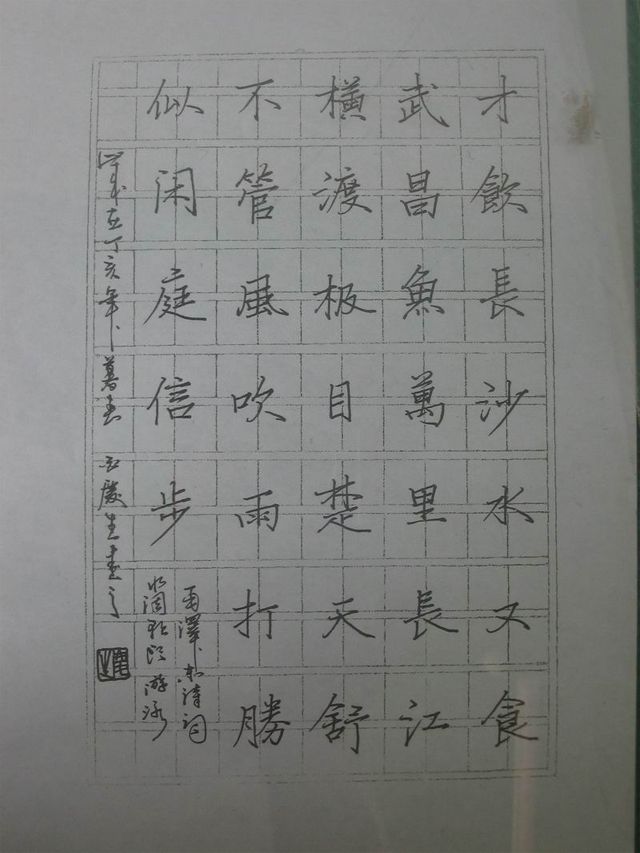 才飲長沙水又食
武昌魚萬里長江
橫渡极目楚天舒
不管風吹雨打勝
似闲庭信步
毛澤东詩詞
水调歌头游泳
丁亥年暮春 慶生書